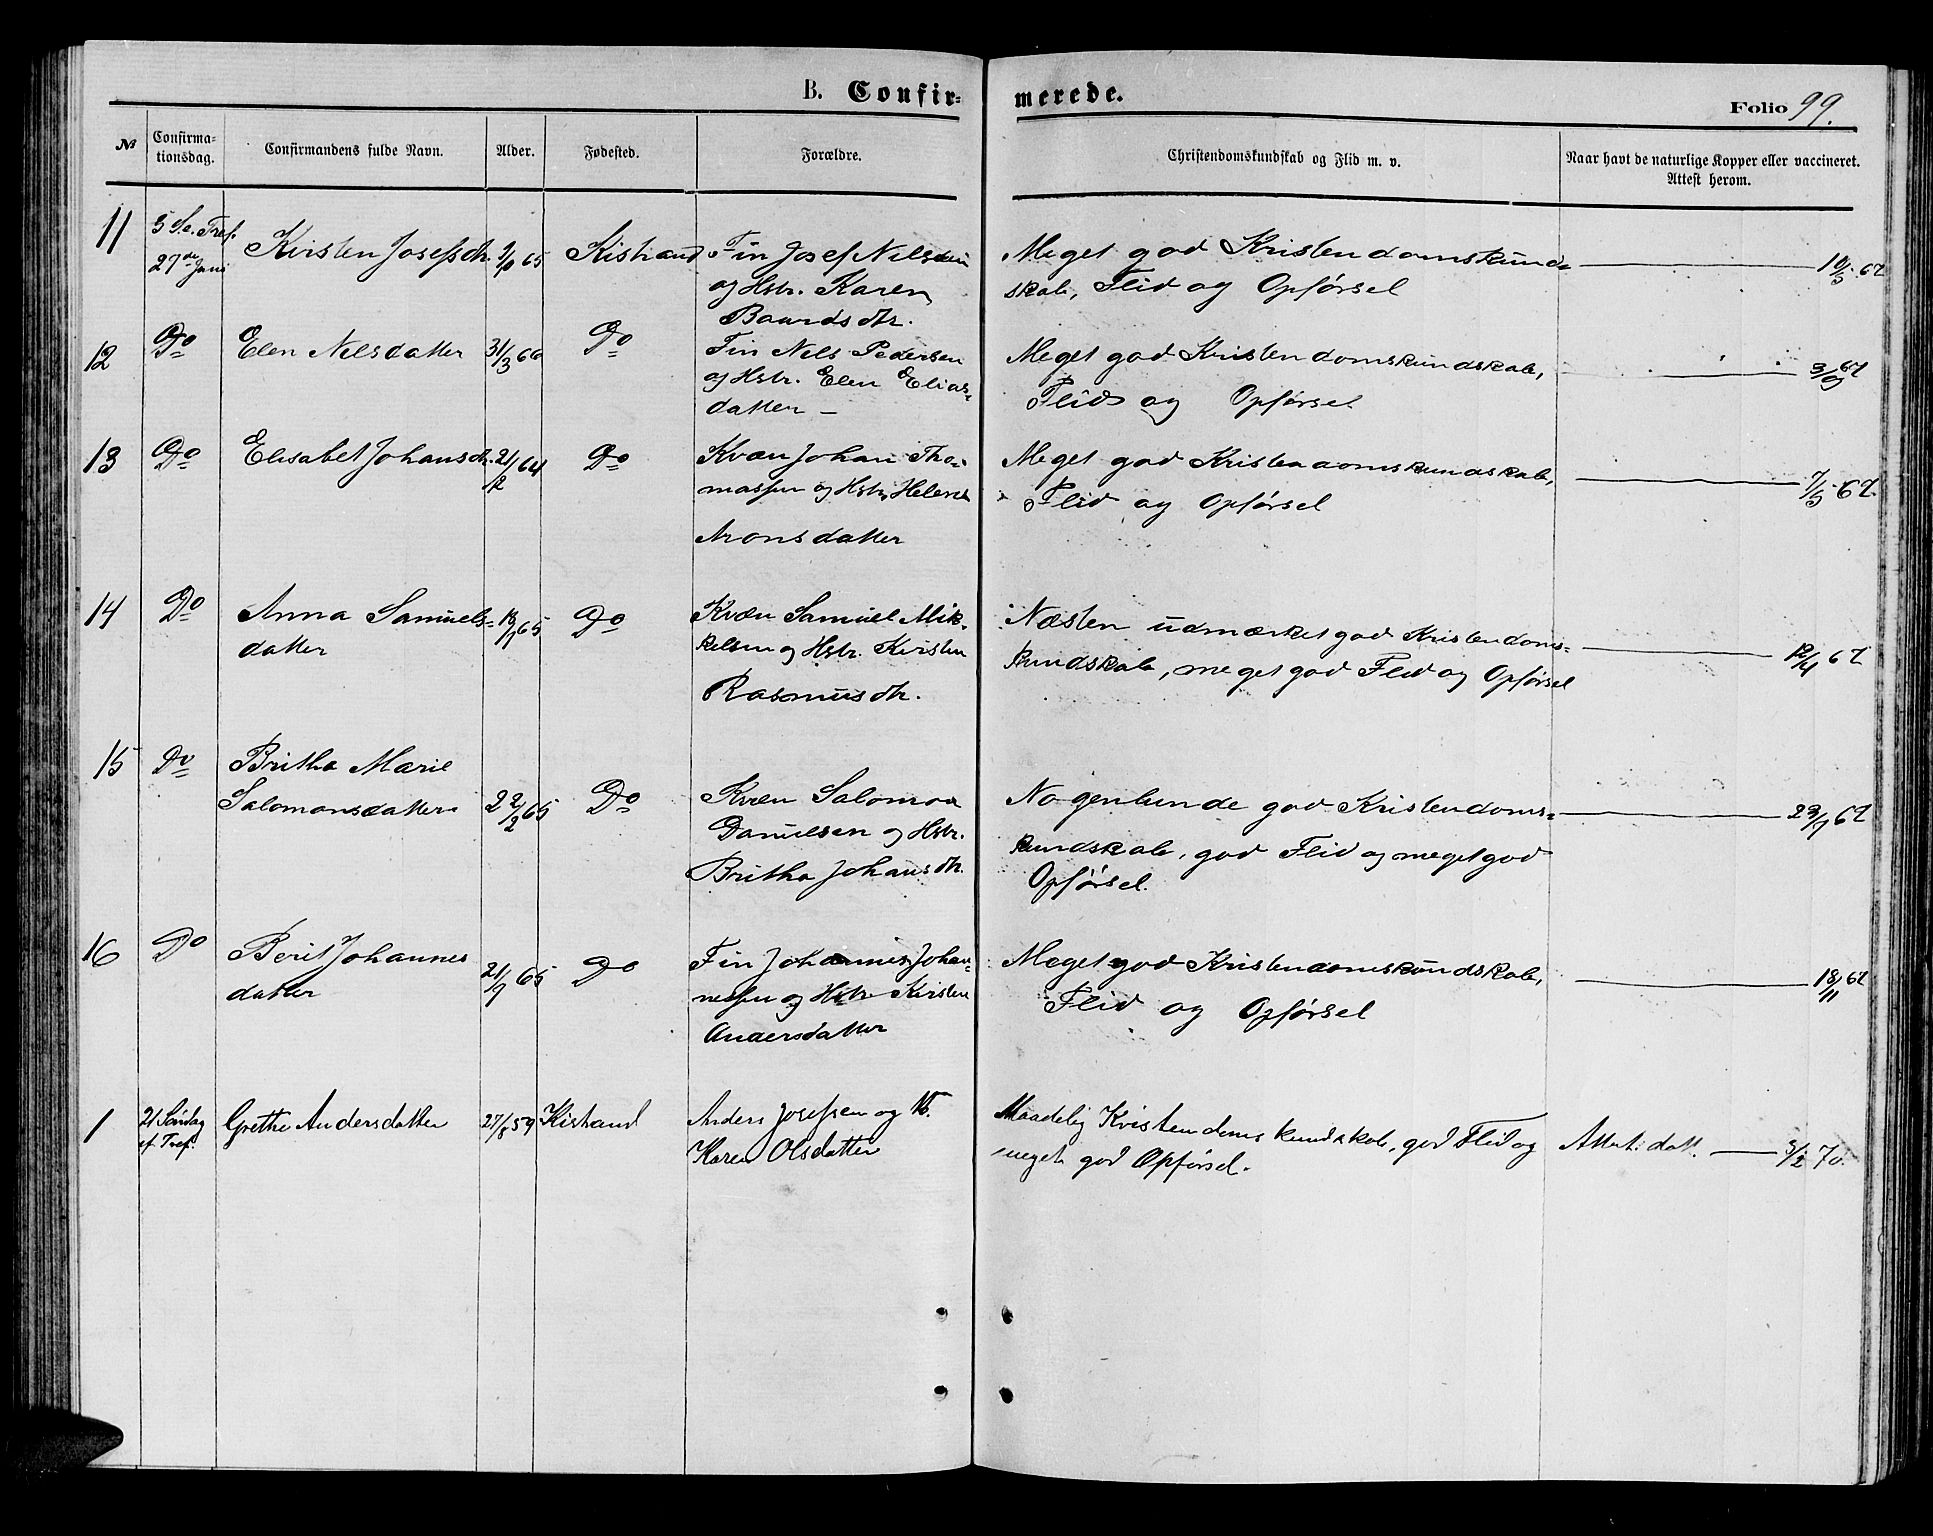 B. Confir=
merede.
Folio 99.
№
Confirma=
tionsdag.
Confirmandens fulde Navn.
Alder.
Fødested.
Forældre.
Christendomskundskab og Flid m. v.
Naar havt de naturlige Kopper eller vaccineret.
Attest herom.
11
5 S. e. Tref.
27de Juni
Kirsten Josefsdtr.
65
Kistrand
Fin Josef Nilssen
og Hstr. Karen
Baardsdtr.
Meget god Kristendomskund=
skab, Flid og Opførsel
67
12
Do
Elen Nilsdatter
31/3 66
Do
Fin Nils Pedersen
og Hstr. Elen Elias=
datter –
Meget god Kristendomskundskab,
Flid og Opførsel
67
13
Do
Elisabet Johansdtr.
21/12 64
Do
Kvæn Johan Tho=
massen og Hstr. Helene
Aronsdatter
Meget god Kristendomskundskab,
Flid og Opførsel
7/5 67.
14
Do
Anna Samuels=
datter
65
Do
Kvæn Samuel Mik=
kelsen og Hstr. Kirsten
Rasmusdtr.
Næsten udmærket god Kristendoms=
kundskab, meget god Flid og Opførsel
67
15
Do
Britha Marie
Salomonsdatter
22/2 65
Do
Kvæn Salomon
Danielsen og Hstr.
Britha Johansdtr.
Nogenlunde god Kristendoms=
kundskab, god Flid og meget god
Opførsel.
23/7 67
16
Do
Berit Johannes
datter
21/7 65
Do
Fin Johannes Johan=
nessen og Hstr Kirsten
Andersdatter
Meget god Kristendomskundskab,
Flid og Opførsel
18/11 67
1
21 Søndag
ef. Tref.
Grethe Andersdatter
27/8 59
Kistrand
Anders Josefsen og H.
Karen Olsdatter
Maadelig Kristendomskundskab, god Flid og
meget god Opførsel.
Attest. dat. 3/2 70.